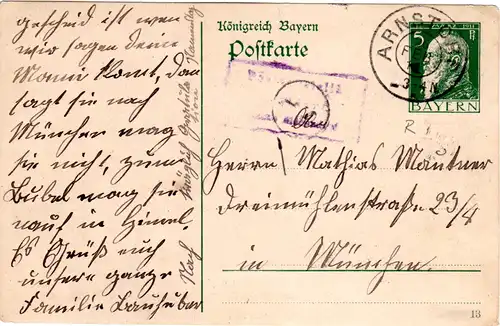 gescheid ist wen
wir sagen deine
Mama komt, dan
sagt sie nach
München mag
sie nicht, zum
Bubel mag sie
nauf in Himel.
Es Grüß euch
unsere ganze
Familie Bauhuber
Königreich Bayern
Postkarte
5
BAYERN
ARNSTORF
Herrn Mathias Mantner
Dreimühlenstraße 23/4
in München.
13